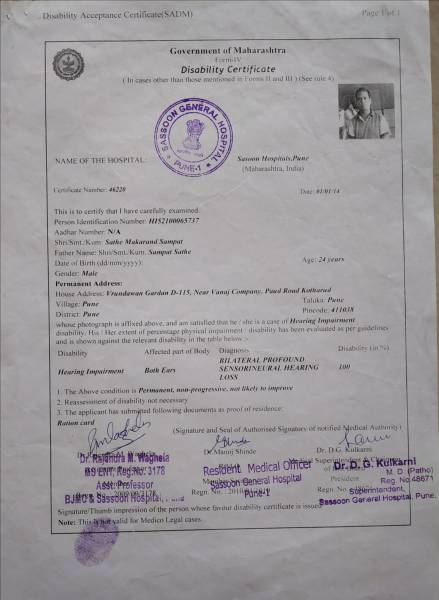 Disability Acceptance Certificate(SADM)
Page 1 of 1
Government of Maharashtra
Form-IV
Disability Certificate
( In cases other than those mentioned in Forms II and III ) (See rule 4)
SASSOON GENERAL HOSPITAL
PUNE-1
NAME OF THE HOSPITAL: Sasoon Hospitals,Pune
(Maharashtra, India)
Certificate Number: 46220 Date: 01/01/14
This is to certify that I have carefully examined.
Person Identification Number: HI52100065737
Aadhar Number: N/A
Shri/Smt./Kum: Sathe Makarand Sampat
Father Name: Shri/Smt./Kum. Sampat Sathe
Date of Birth (dd/mm/yyyy): Age: 24 years
Gender: Male
Permanent Address:
House Address: Vrundawan Gardan D-115, Near Vanaj Company, Paud Road Kothurud
Village: Pune Taluka: Pune
District: Pune Pincode: 411038
whose photograph is affixed above, and am satisfied that he / she is a case of Hearing Impairment
disability. His / Her extent of percentage physical impairment / disability has been evaluated as per guidelines
and is shown against the relevant disability in the table below :-
Disability Affected part of Body Diagnosis Disability (in %)
Hearing Impairment Both Ears BILATERAL PROFOUND SENSORINEURAL HEARING LOSS 100
1. The Above condition is Permanent, non-progressive, not likely to improve
2. Reassessment of disability not necessary
3. The applicant has submitted following documents as proof of residence:
Ration card
(Signature and Seal of Authorised Signatory of notified Medical Authority)
Dr.Manoj Shinde
Dr. D.G. Kulkarni
Dr. Rajendra M. Waghela
MS ENT, Reg.No. 3178
Asst. Professor
BJMC & Sassoon Hospital,
Resident Medical Officer
Sassoon General Hospital
Pune-1
Dr. D. G. Kulkarni
M. D (Patho)
President
Reg. No.48671
Superintendent,
Sassoon General Hospital, Pune.
Signature/Thumb impression of the person whose favour disability certificate is issued
Note: This is not valid for Medico Legal cases.